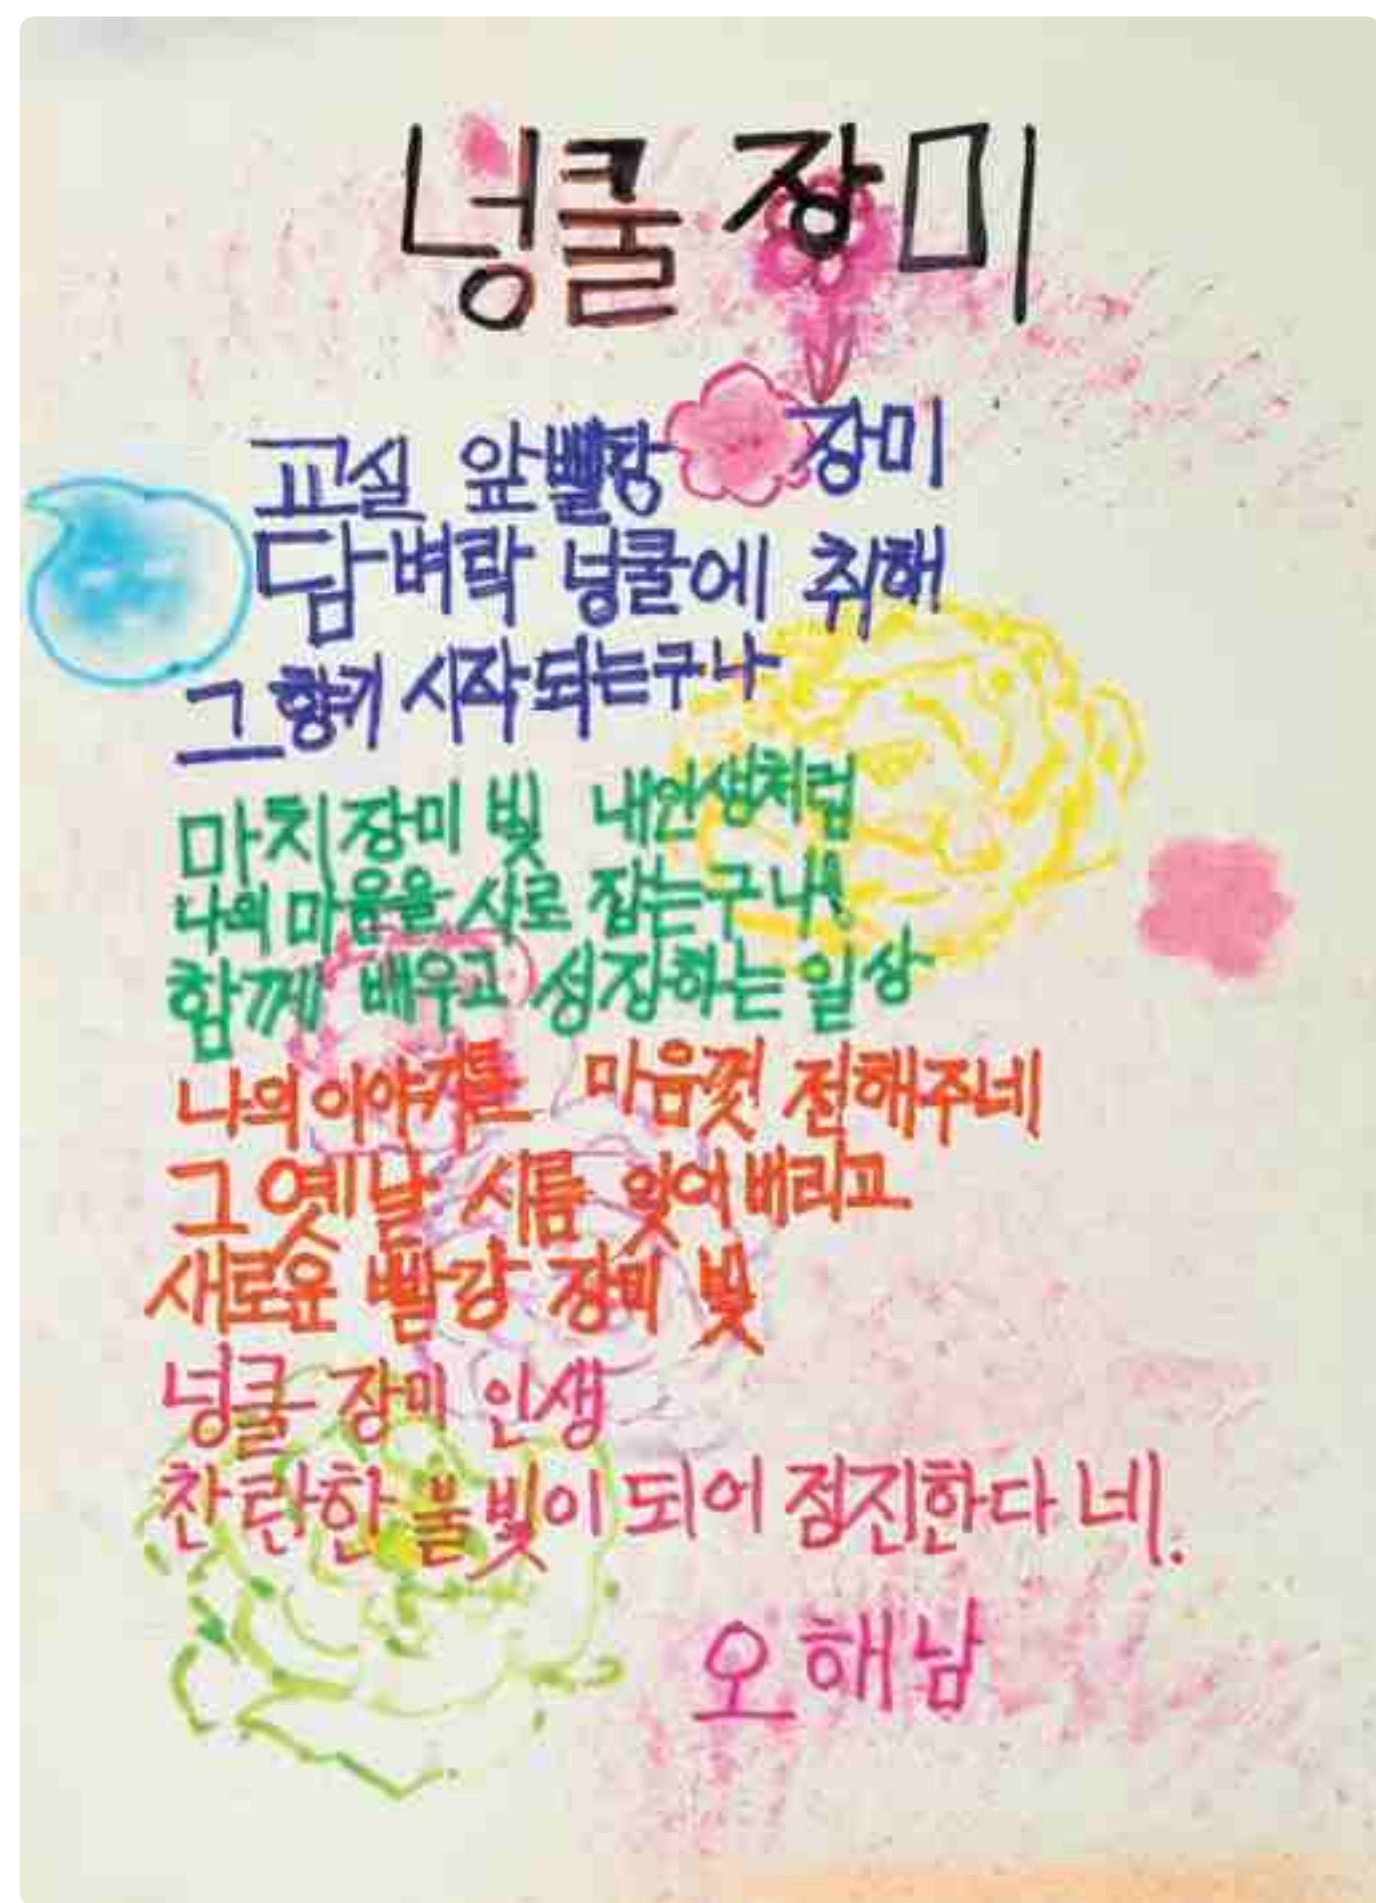 넝쿨 장미
교실 앞 빨강 장미
담벼락 넝쿨에 취해
그 향기 시작되는구나
마치 장미 빛 내인생처럼
나의 마음을 사로 잡는구나
함께 배우고 성장하는 일상
나의 이야기를 마음껏 전해주네
그 옛날 시름 잊어버리고
새로운 빨강 장미 빛
넝쿨 장미 인생
찬란한 불빛이 되어 정진한다네.
오해남